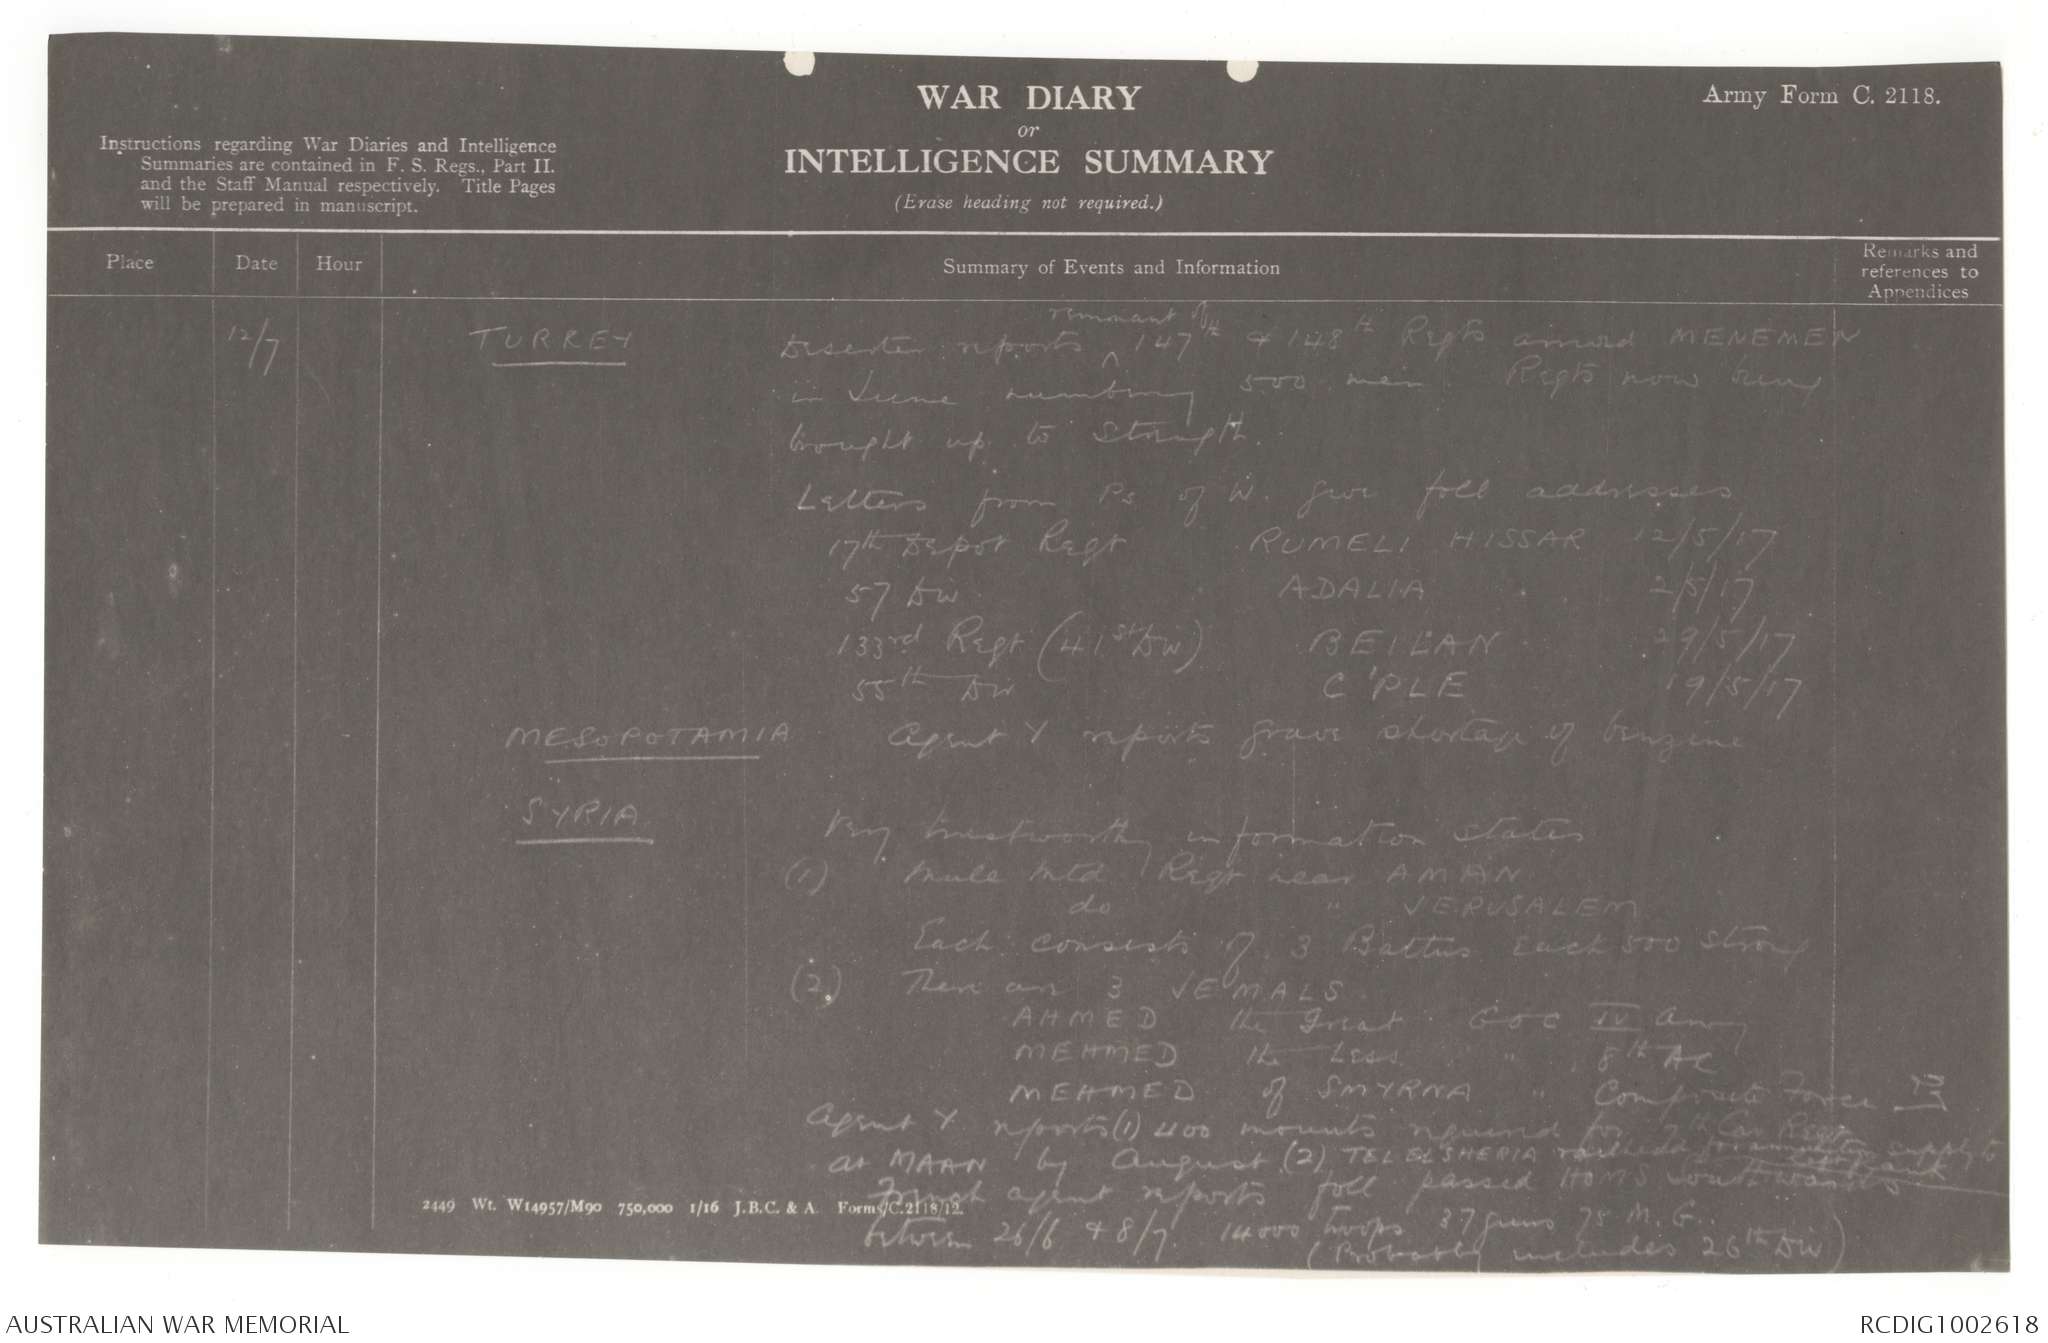 WAR DIARY
or
INTELLIGENCE SUMMARY
(Erase heading not required.)
Army Form C. 2118.
Instructions regarding War Diaries and Intelligence
Summaries are contained in F. S. Regs., Part II.
and the Staff Manual respectively. Title Pages
will be prepared in manuscript.
Place
Date
Hour
Summary of Events and Information
Remarks and
references to
Appendices
12/7
TURKEY
remnant of
Deserter reports ^ 147th & 148th Regts arrived MENEMEN
in June numbering 500 men. Regts now being
brought up to Strength.
Letters from Ps of W. give foll addresses
17th Depot Regt RUMELI HISSAR 12/5/17
57 Div ADALIA 2/5/17
133rd Regt (41st Div) BEILAN 29/5/17
55th Div C'PLE 19/5/17
MESOPOTAMIA Agent Y reports grave shortage of benzine
SYRIA
Very trustworthy information states
(1) Mule Mtd Regt near AMAN
do " JERUSALEM
Each consists of 3 Battns each 500 strong
(2) There are 3 JEMALS.
AHMED the Great GOC IV Army
MEHMED the Less " 8th AC
MEHMED of SMYRNA " Composite Force
Agent Y reports (1) 400 mounts required for 7th Cav Regt
at MAAN by August (2) TEL ELSHERIA railhead for ammunition supply to
French agent reports foll passed HOMS southwards
between 26/6 & 8/7. 14000 troops 37 guns 78 M.G.
(Probably includes 26th Div)
2449 Wt. W14957/M90 750,000 1/16 J.B.C. & A. Forms/C.2118/12.
AUSTRALIAN WAR MEMORIAL
RCDIG1002618